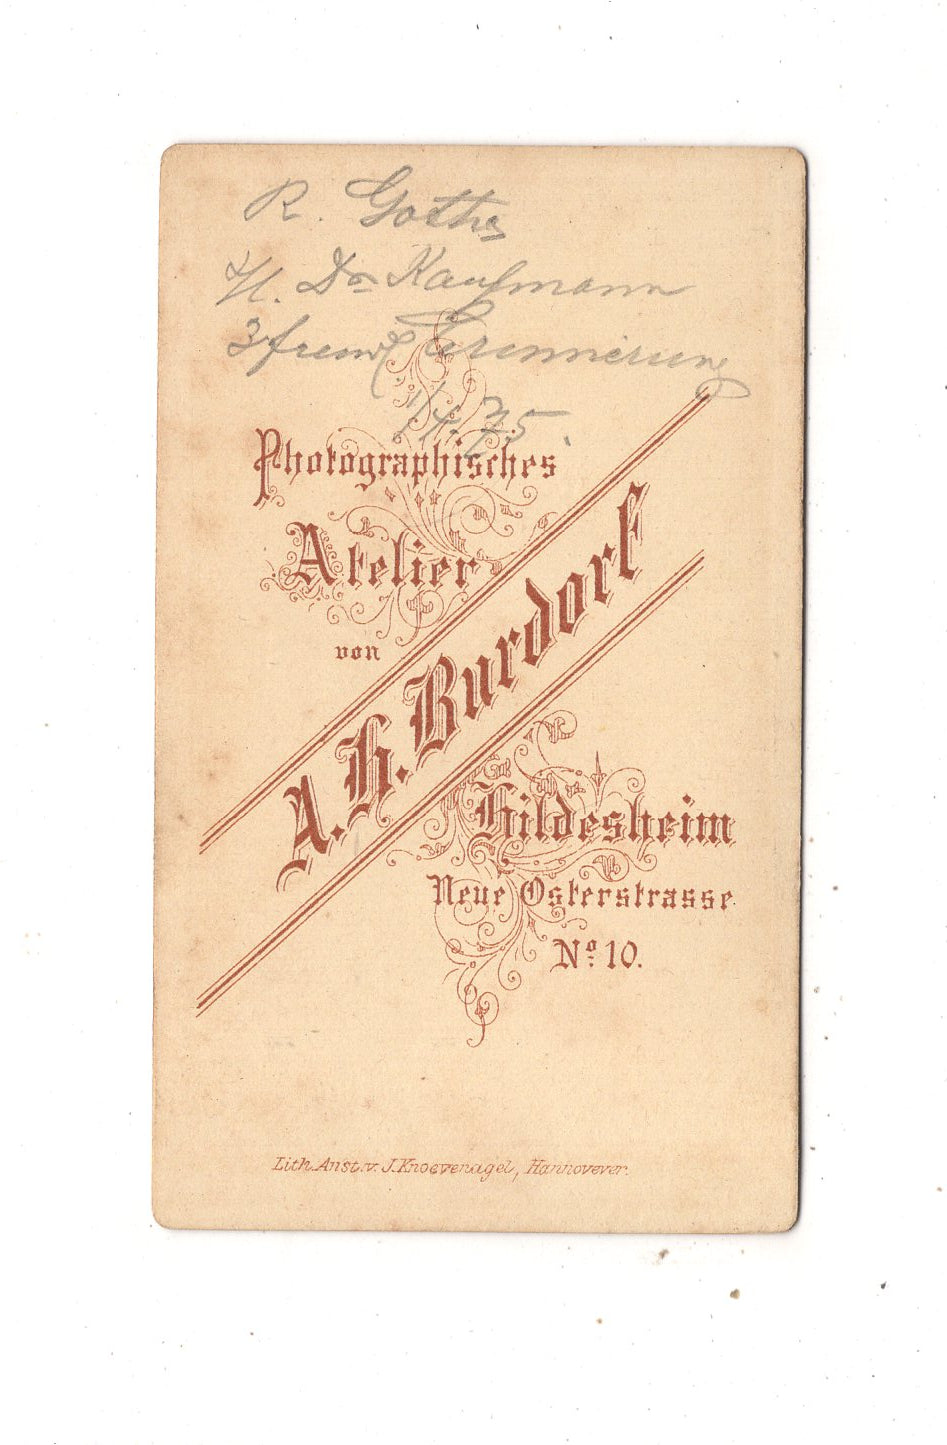 R. Gothe
H. Dr Kaufmann
z freundl Erinnerung
1/4. 75.
Photographisches
Atelier
von
A. H. Burdorf
Hildesheim
Neue Osterstrasse
No. 10.
Lith. Anst. v. J. Knoevenagel, Hannovever.